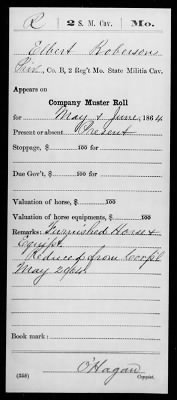 R 2 S. M. Cav. Mo.
Elbert Roberson
Priv., Co. B, 2 Reg't Mo. State Militia Cav.
Appears on
Company Muster Roll
for May & June, 1864
Present or absent Present
Stoppage, $ 100 for
Due Gov't, $ 100 for
Valuation of horse, $ 100
Valuation of horse equipments, $ 100
Remarks: Furnished Horse &
Equipt.
Reduced from Corpl
May 29/64.
Book mark:
O'Hagan
(358) Copyist.